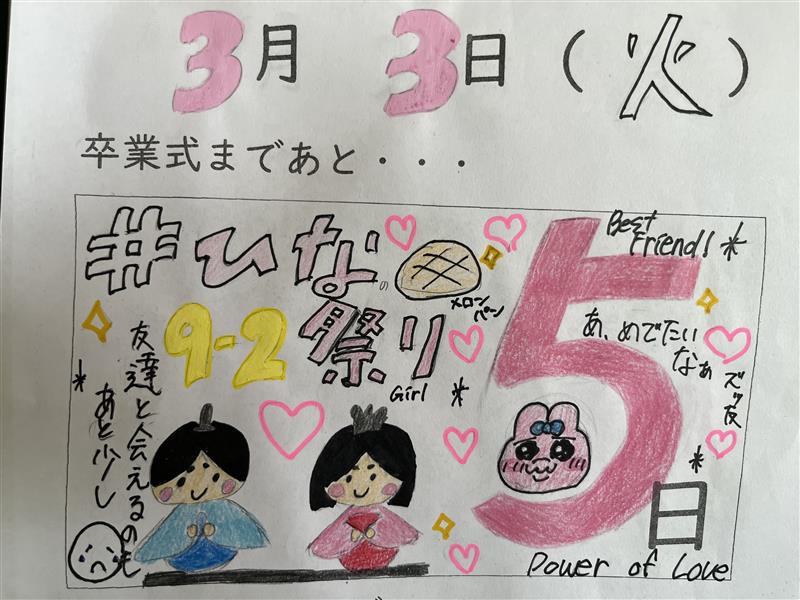 3月 3日 (火)
卒業式まであと・・・
#ひなの
メロンパン
9-2 祭り
Girl
友達と会えるのも
あと少し
5日
Best
Friend!
あ、めでたい
なぁ
ズッ友
Power of Love